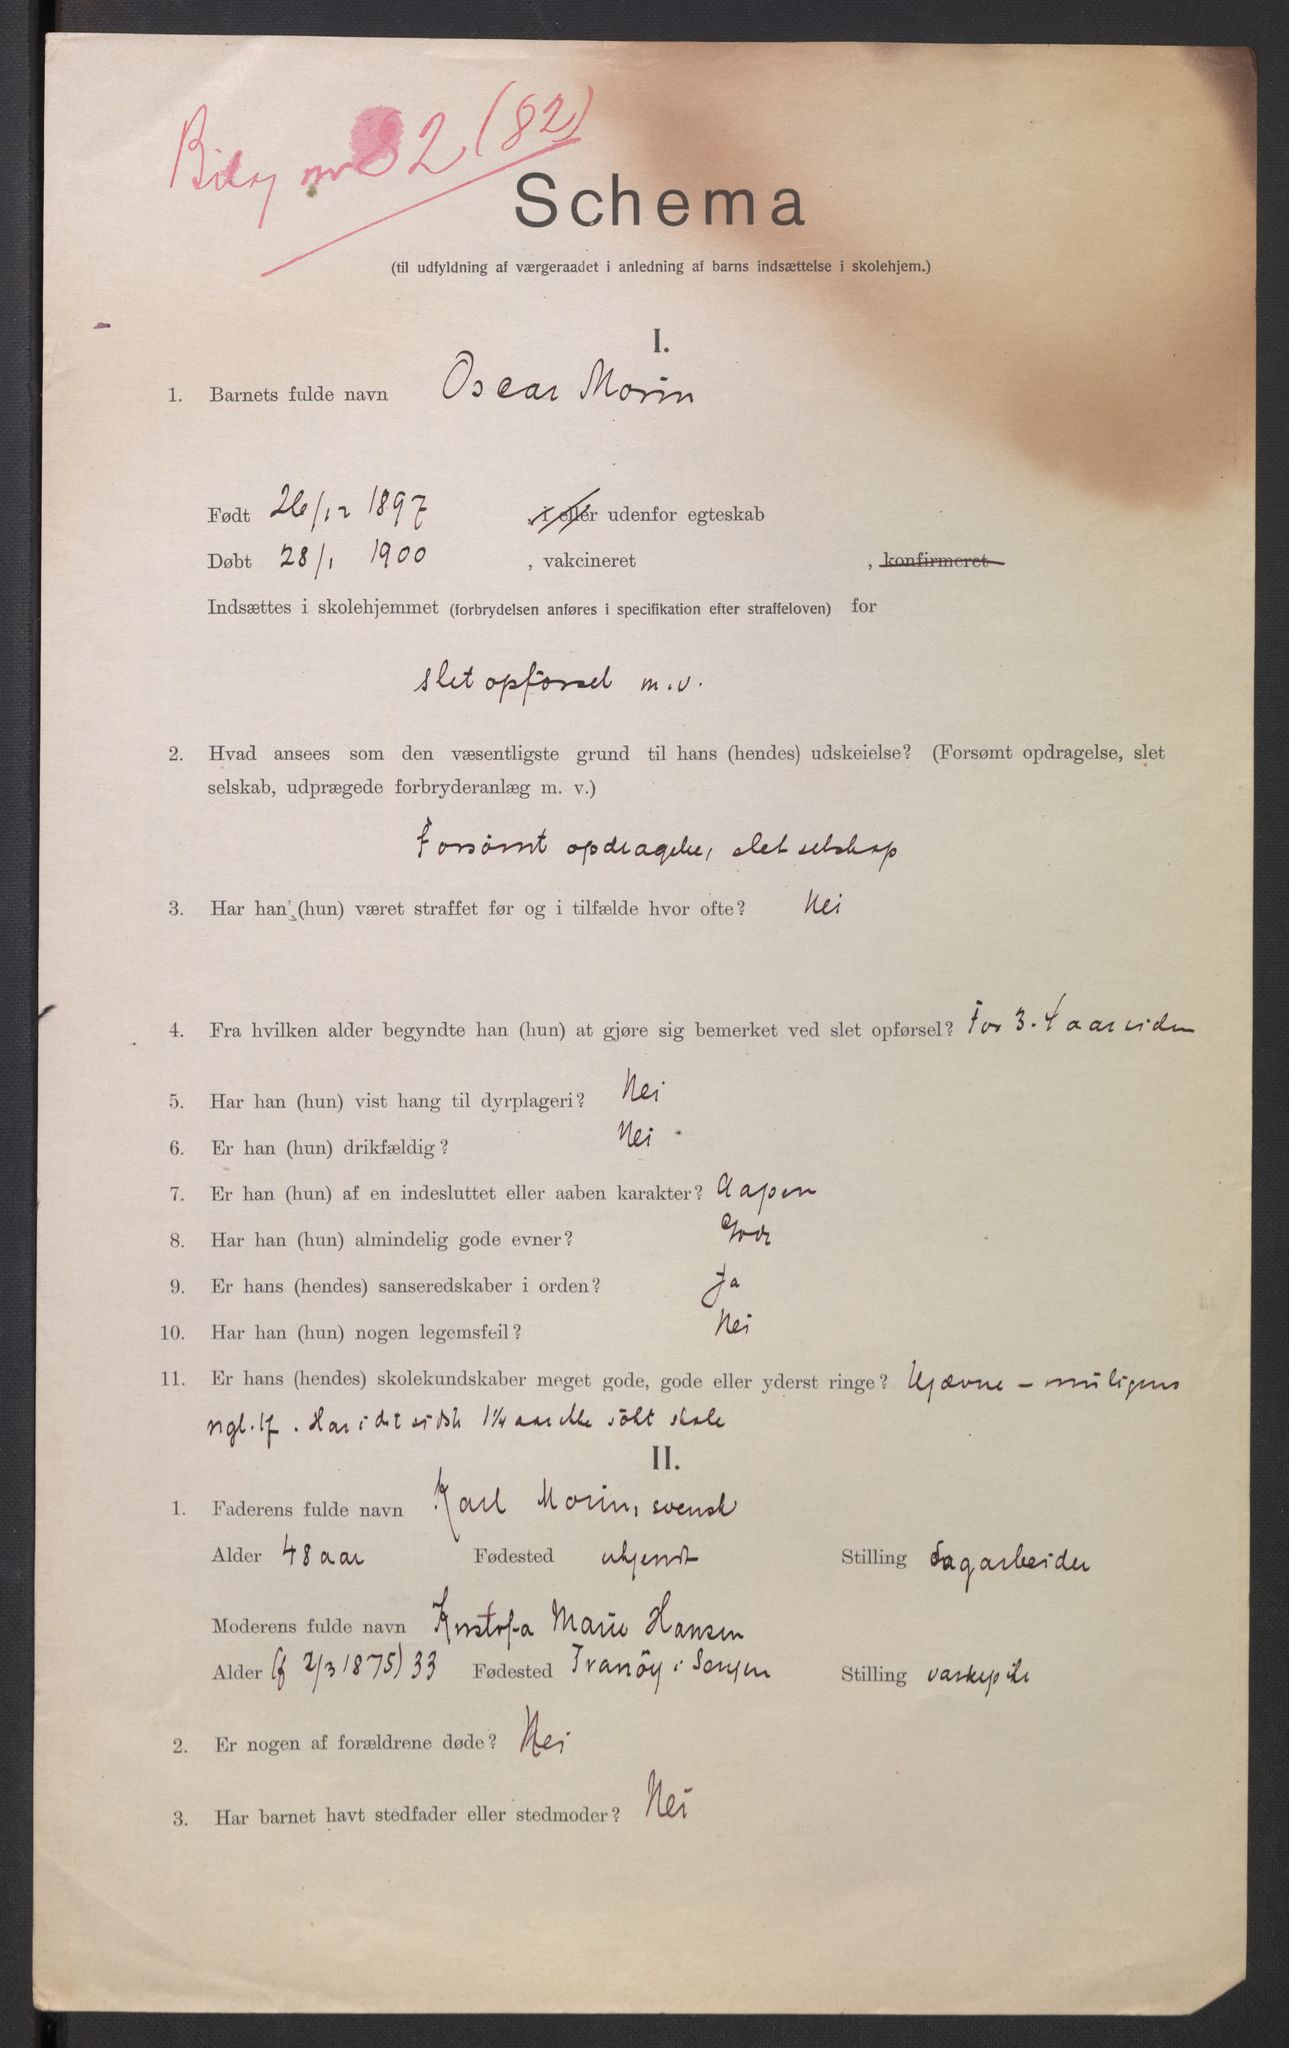 Bilag nr 82 (82)
Schema
(til udfyldning af værgeraadet i anledning af barns indsættelse i skolehjem.)
I.
1. Barnets fulde navn Oscar Morin
Født 26/12 1897 , i eller udenfor egteskab
Døbt 28/1 1900 , vakcineret , konfirmeret
Indsættes i skolehjemmet (forbrydelsen anføres i specifikation efter straffeloven) for
slet opførsel m.v.
2. Hvad ansees som den væsentligste grund til hans (hendes) udskeielse? (Forsømt opdragelse, slet
selskab, udprægede forbryderanlæg m. v.)
Forsømt opdragelse, slet selskap
3. Har han (hun) været straffet før og i tilfælde hvor ofte? Nei
4. Fra hvilken alder begyndte han (hun) at gjøre sig bemerket ved slet opførsel? For 3-4 aar siden
5. Har han (hun) vist hang til dyrplageri? Nei
6. Er han (hun) drikfældig? Nei
7. Er han (hun) af en indesluttet eller aaben karakter? Aapen
8. Har han (hun) almindelig gode evner? Gode
9. Er hans (hendes) sanseredskaber i orden? Ja
10. Har han (hun) nogen legemsfeil? Nei
11. Er hans (hendes) skolekundskaber meget gode, gode eller yderst ringe? Ujævne - muligens
Har i det sidste 1 1/4 aar ikke søkt skole
II.
1. Faderens fulde navn Karl Morin, svensk
Alder 48 aar Fødested ukjendt Stilling sagarbeider
Moderens fulde navn Kristofa Marie Hansen
Alder (f 2/3 1875) 33 Fødested Tranöy i Senjen Stilling vaskepike
2. Er nogen af forældrene døde? Nei
3. Har barnet havt stedfader eller stedmoder? Nei